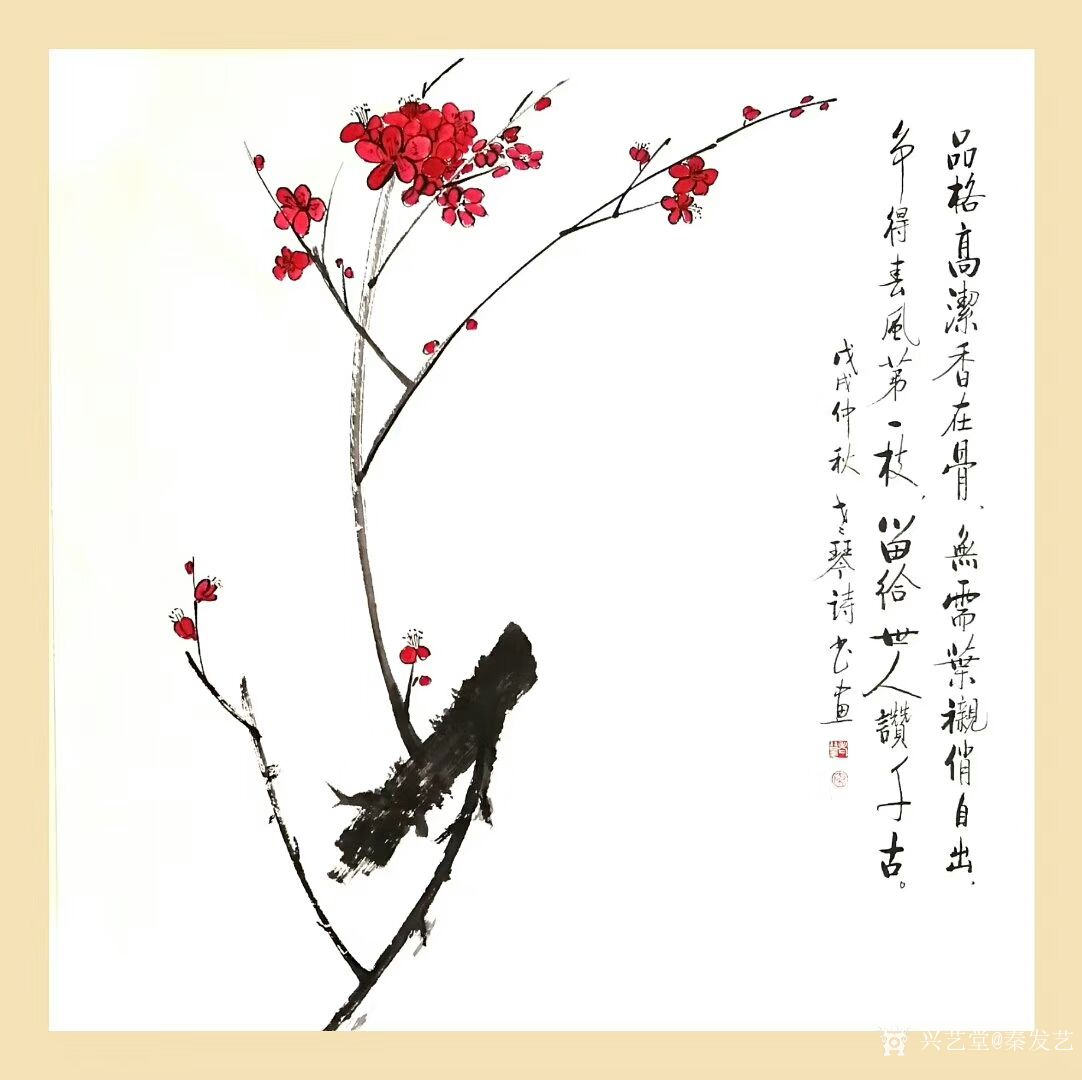 品格高潔香在骨、無需葉襯俏自出，
争得春風第一枝，留给世人讚千古。
戊戌仲秋 老琴诗书画
兴艺堂@秦发艺